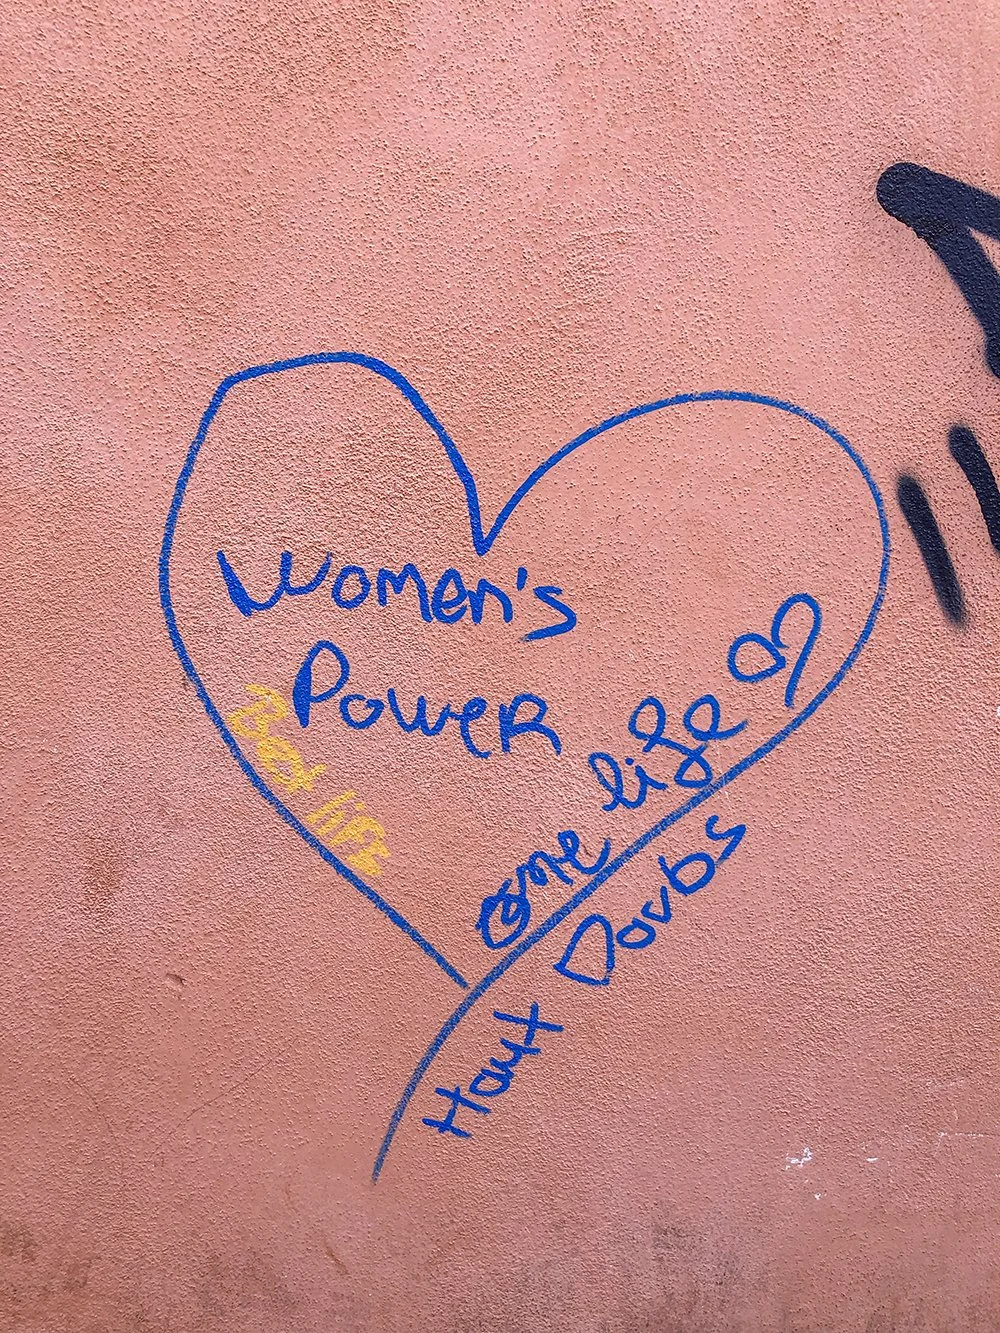 Women's
Power
Best life
one life
Haut Doubs